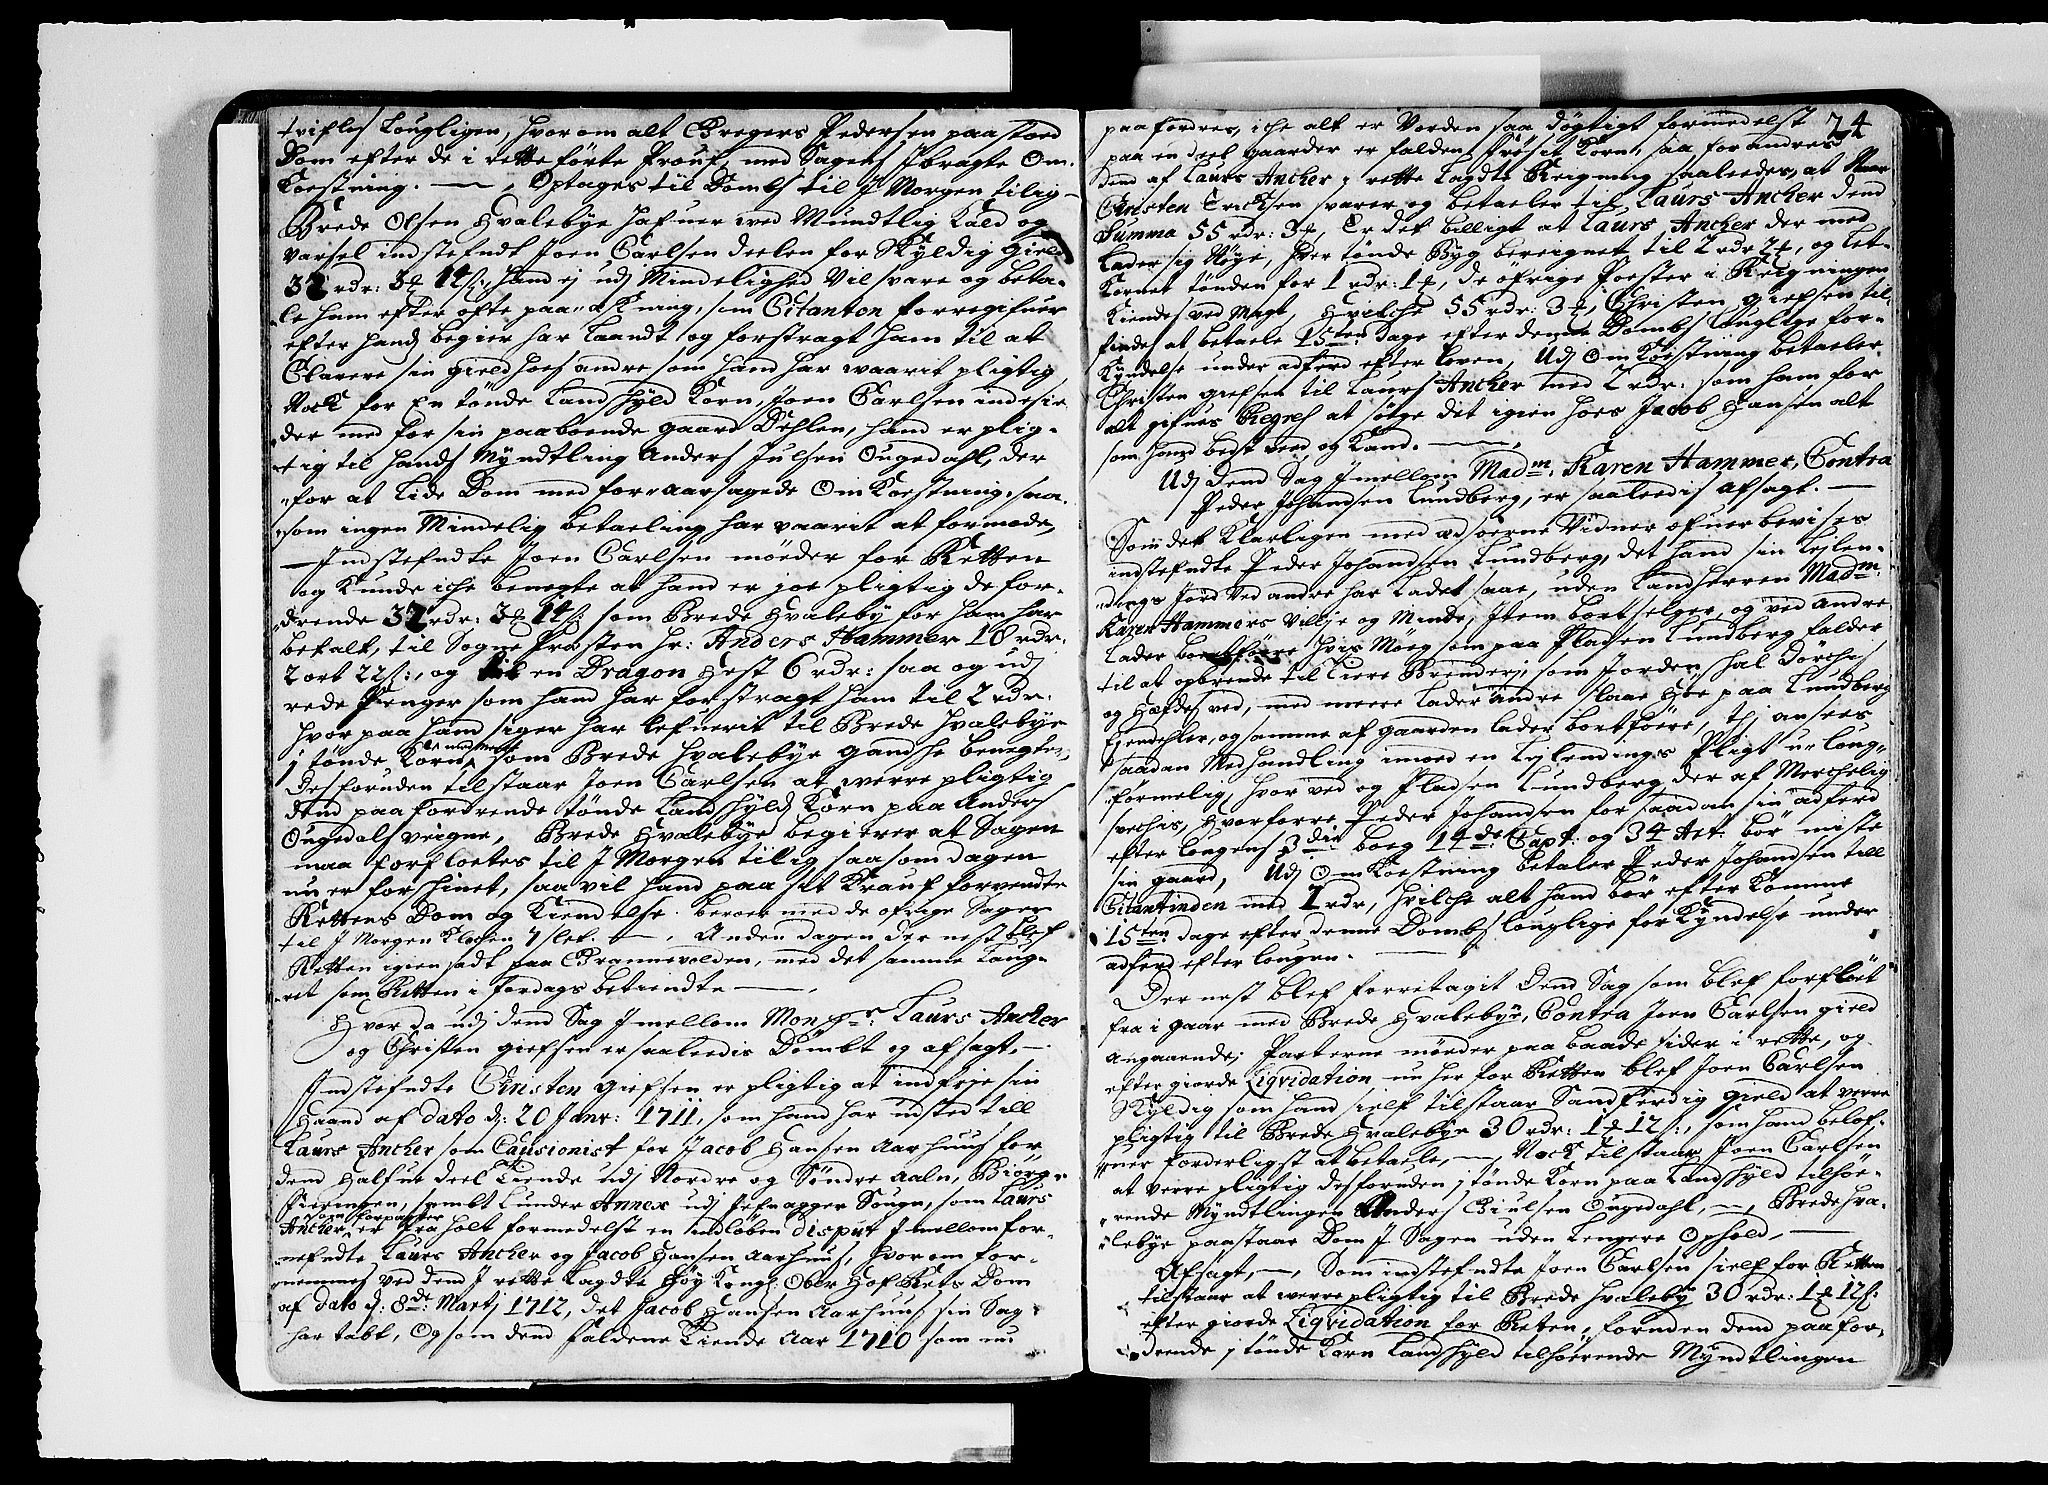 tvifles Lougligen, hvorom alt Gregers Pedersen paastoed
Dom efter de i rette førte Prouf, med Sagens J bragte Om-
Koestning. — Optages til Dombs til J Morgen tilig —
Brede Olsen Hvalebye hafuer ved Mundtlig Kald og
Varsel indstefndt Joen Carlsen deelen for Skyldig gield
32 rdr: 3 14 s: hand ej udj Mindelighed Vil svare og beta-
le ham efter ofte paa-askning, som Citanten forregifuer
efter hands begier har laandt og forstragt ham til at
Clarere sin gield hoes andre som hand har waarit pligtig
Nock for En tønde Landskyld Korn, Joen Carlsen indesid-
der med for sin paaboende gaard Dehlen, hand er plig-
tig til hands Myndtling Anders Julsen Ougedahl, der
for at lide Dom med foraarsagede Om Koestning, saa-
som ingen Mindelig betaeling har vaarit at formode,
— Indstefndte Joen Carlsen møeder for Retten
og Kunde iche benegte at hand er joe pligtig de for-
drende 32 rdr: 3 14 s: som Brede Hvaleby for ham har
betalt, til Sogne Prosten Hr: Anders Hammer 16 rdr:
2 ort 22 s:, og til en Dragon Hest 6 rdr: saa og udj
rede Penger som hand har forstragt ham til 2 rdr.
hvor paa hand siger har lefuerit til Brede Hvalebye
1 tønde Korn, som Brede Hvalebye gandske benegter,
Desforuden tilstaar Joen Carlsen at werre pligtig
dend paafordrende tønde Landskyld Korn paa Anders
Ougedals veigne, Brede Hvalebye begierer at Sagen
maa forfloetes til J Morgen tilig saasom dagen
nu er forskinet, saa vil hand paa sit Krauf forvendte
Rettens Dom og Kiendelse. beroer med de øfrige Sager
til J Morgen Klochen 7 slet. — Anden dagen der nest blef
Retten igien sadt paa Grannevolden, med det samme Laug-
ret som Retten i fordags betiendte —
Hvor da udj dend Sag J mellom Monsr: Laurs Ancher
og Christen giefsen er saaledis Dømbt og afsagt, —
Indstefndte Christen giefsen er pligtig at indfrje sin
Haand af dato d: 20 Janr: 1711, som hand har udsted till
Laurs Ancher som Causionist for Jacob Hansen Aarhuus for
dend Halfue deel Tiende udj Nordre og Søndre Aaln, Biørg-
Fieringen, sambt Lunder Annex udj Jefnagger Sougn, som Laurs
Ancher som forpagter er fra holt formedelst en indløben disput J mellom for-
nefndte Laurs Ancher og Jacob Hansen Aarhuus, hvorom for-
nemmes ved dend J rette lagdte Høy Kongl: Ober Hof Rets Dom
af dato d: 8de: Martj 1712, det Jacob Hansen Aarhuus sin Sag
har tabt, Og som dend faldene Tiende Aar 1710 som nu
24
paafordres, iche alt er Voeden saa døgtigt formedelst
paa en deel gaarder er falden frøsit Korn, saa forandres
dend af Laurs Ancher i rette lagdte Reigning saaledes, at Naar
Christen Ericksen svarer og betaeler til Laurs Ancher dend
Summa 55 rdr: 3, Er det billigt at Laurs Ancher der med
Lader sig Nøye, Per tønde Byg bereignet til 2 rdr 2, og let-
Kornet tønden for 1 rdr: 1, de øfrige Poester i Reigningen
Kiendes ved Magt, hvilche 55 rdr: 3, Christen giefsen til-
findes at betaele 15ten dage efter denne Dombs Louglige for-
Kyndelse under adferd efter loven, Udj Om Koestning betaeler
Christen giefsen til Laurs Ancher med 2 rdr: som ham for
alt gifues Regres at søge dit igien hoes Jacob Hansen alt
som hand best ved og Kand. —
Udj dend Sag J mellom Madm. Karen Hammer, Contra
Peder Johansen Lundberg, er saaledis afsagt. —
Som det Klarligen med edsoerne Vidner ofuerbevises
indstefndte Peder Johansen Lundberg, det hand sin Lejlen-
dings Jord Ved andre har ladet saae, uden Landherren Madm:
Karen Hammers Villje og Minde, Item bortselger, og ved andre
lader bortføere hvis Møeg som paa Pladsen Lundberg falder
til at opbrende til Tiere Brenderj, som Jorden skal dørches
og Hæfdes ved, med meere lader andre slaae Høe paa Lundberg
Ejendehler, og samme af gaarden lader bortføere, thj ansees
saadan Medhandling imoed en Lejlendings Pligt u-loug-
førmelig, hvor ved og Pladsen Lundberg der af Merchelig
svechis, hvorforre Peder Johansen for saadan sin adferd
efter Lougens 3die boeg 14de: Capt: og 34 Art. bør miste
sin gaard, Udj Om Koestning betaler Peder Johansen till
Citantinden med 1 rdr, hvilche alt hand bør efter Komme
15ten dage efter denne Dombs louglige for Kyndelse under
adferd efter lougen. —
Der nest blef forretagit Dend Sag som blef forfløt
fra i gaar med Brede Hvalebye, Contra Joen Carlsen gield
angaaende; Parterne møeder paa baade sider i rette, og
efter giorde Liqvidation nu her for Retten blef Joen Carlsen
Skyldig som hand sielf tilstaar Sandferdig gield at verre
pligtig til Brede Hvalebye 30 rdr: 1 12 s:, som hand belof-
uer forderligst at betaele, — Nock tilstaar Joen Carlsen
at verre pligtig desforuden 1 tønde Korn paa Landskyld tilhøe-
rende Myndtlingen Anders Giulsen Ougedahl, — Brede Hva-
lebye paastaar Dom J Sagen uden Lengere Ophold, —
Afsagt, — Som indstefndte Joen Carlsen sielf for Retten
tilstaar at werre pligtig til Brede Hvaleby 30 rdr: 1 12 s.
efter giorde Liqvidation for Reten, foruden dend paafor-
drende 1 tønde Korn Landskyld tilhøerende Myndtlingen